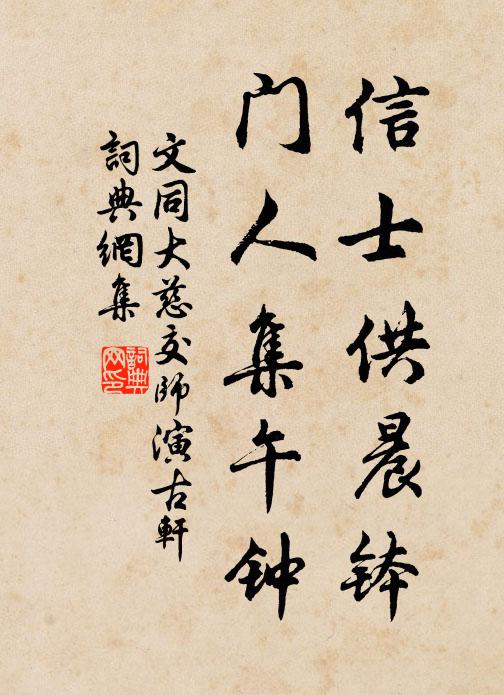 信士供晨钵
门人集午钟
文同大慈交师演古軒
詞典網集
詞典網印